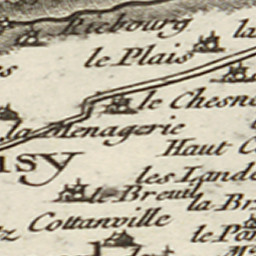 Riebourg
la
le Plais
le Chesn
la Menagerie
Haut
les Land
le Breuil
la Br
Cottanville
le Pon
la